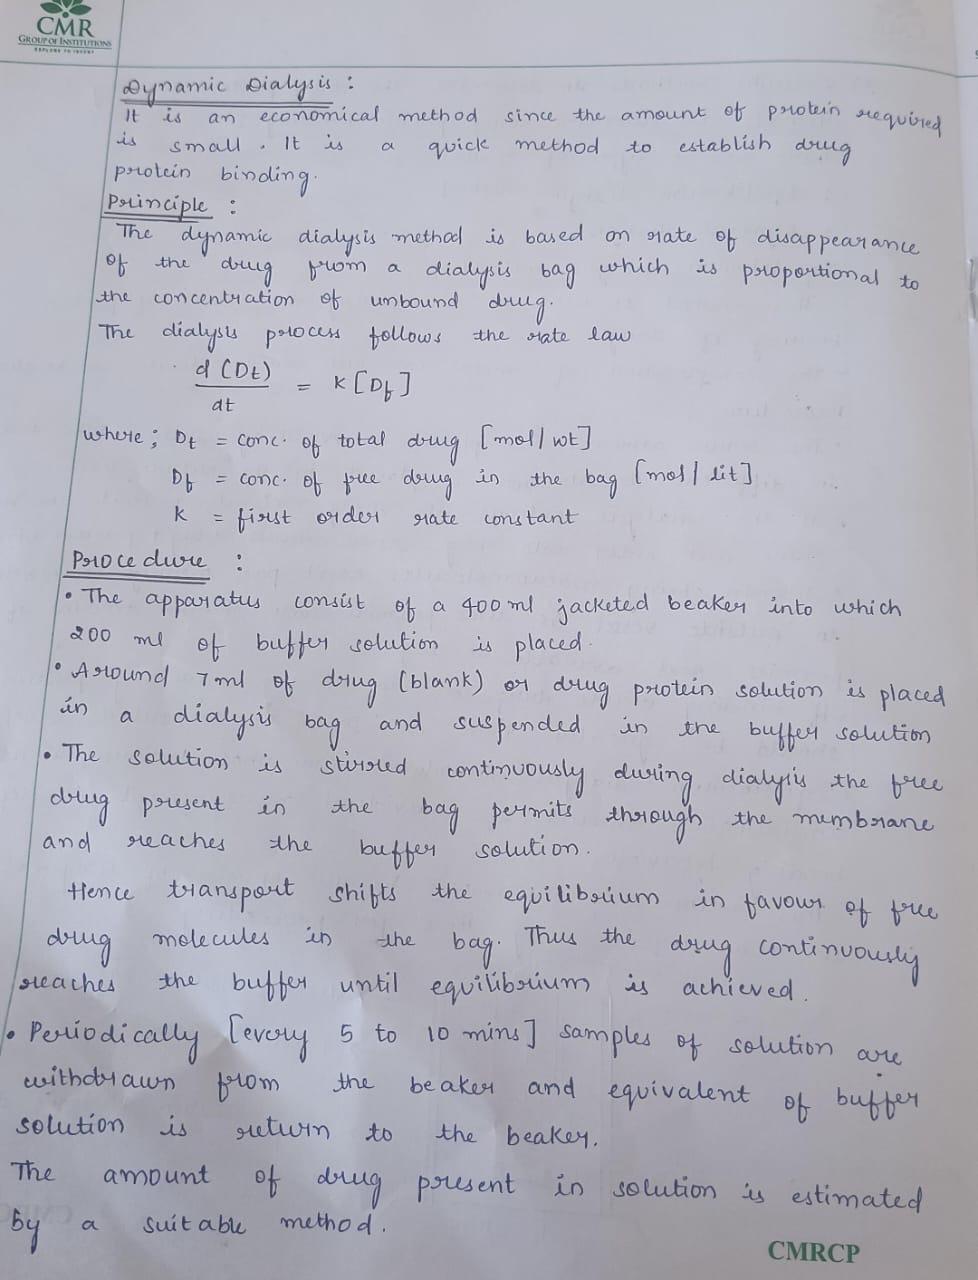 CMR
GROUP OF INSTITUTIONS
EXPLORE TO INVENT
Dynamic Dialysis :
It is an economical method since the amount of protein required
is small. It is a quick method to establish drug
protein binding.
Principle :
The dynamic dialysis method is based on rate of disappearance
of the drug from a dialysis bag which is proportional to
the concentration of unbound drug.
The dialysis process follows the rate law
d (Dt)
—— = K [Df]
dt
where ; Dt = conc. of total drug [mol / wt]
Df = conc. of free drug in the bag [mol / lit]
K = first order rate constant
Procedure :
• The apparatus consist of a 400 ml jacketed beaker into which
200 ml of buffer solution is placed.
• Around 7 ml of drug (blank) or drug protein solution is placed
in a dialysis bag and suspended in the buffer solution
• The solution is stirred continuously during dialyis the free
drug present in the bag permits through the membrane
and reaches the buffer solution.
Hence transport shifts the equilibrium in favour of free
drug molecules in the bag. Thus the drug continuously
reaches the buffer until equilibrium is achieved.
• Periodically [every 5 to 10 mins] samples of solution are
withdrawn from the beaker and equivalent of buffer
solution is return to the beaker.
The amount of drug present in solution is estimated
by a suitable method.
CMRCP